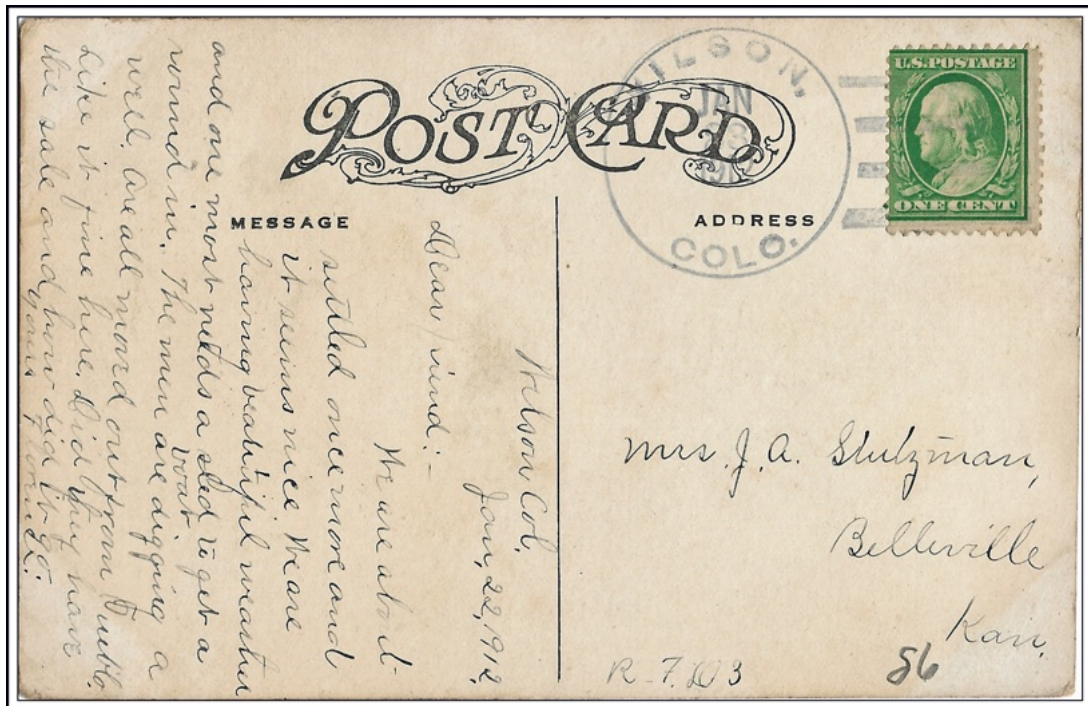 POST CARD
WILSON,
JAN
COLO.
U.S. POSTAGE
ONE CENT
MESSAGE
ADDRESS
Wilson Col,
Jan, 22, 1912,
Dear friend:-
We are about
settled once more and
it seems nice We are
having beatiful weather
and one most needs a sled to get a
round in.
boat
The men are digging a
well. are all moved out from
Like it fine here. Did they have
the sale and how did it go.
yours
Mrs. J. A. Stutzman,
Belleville
Kan.
86